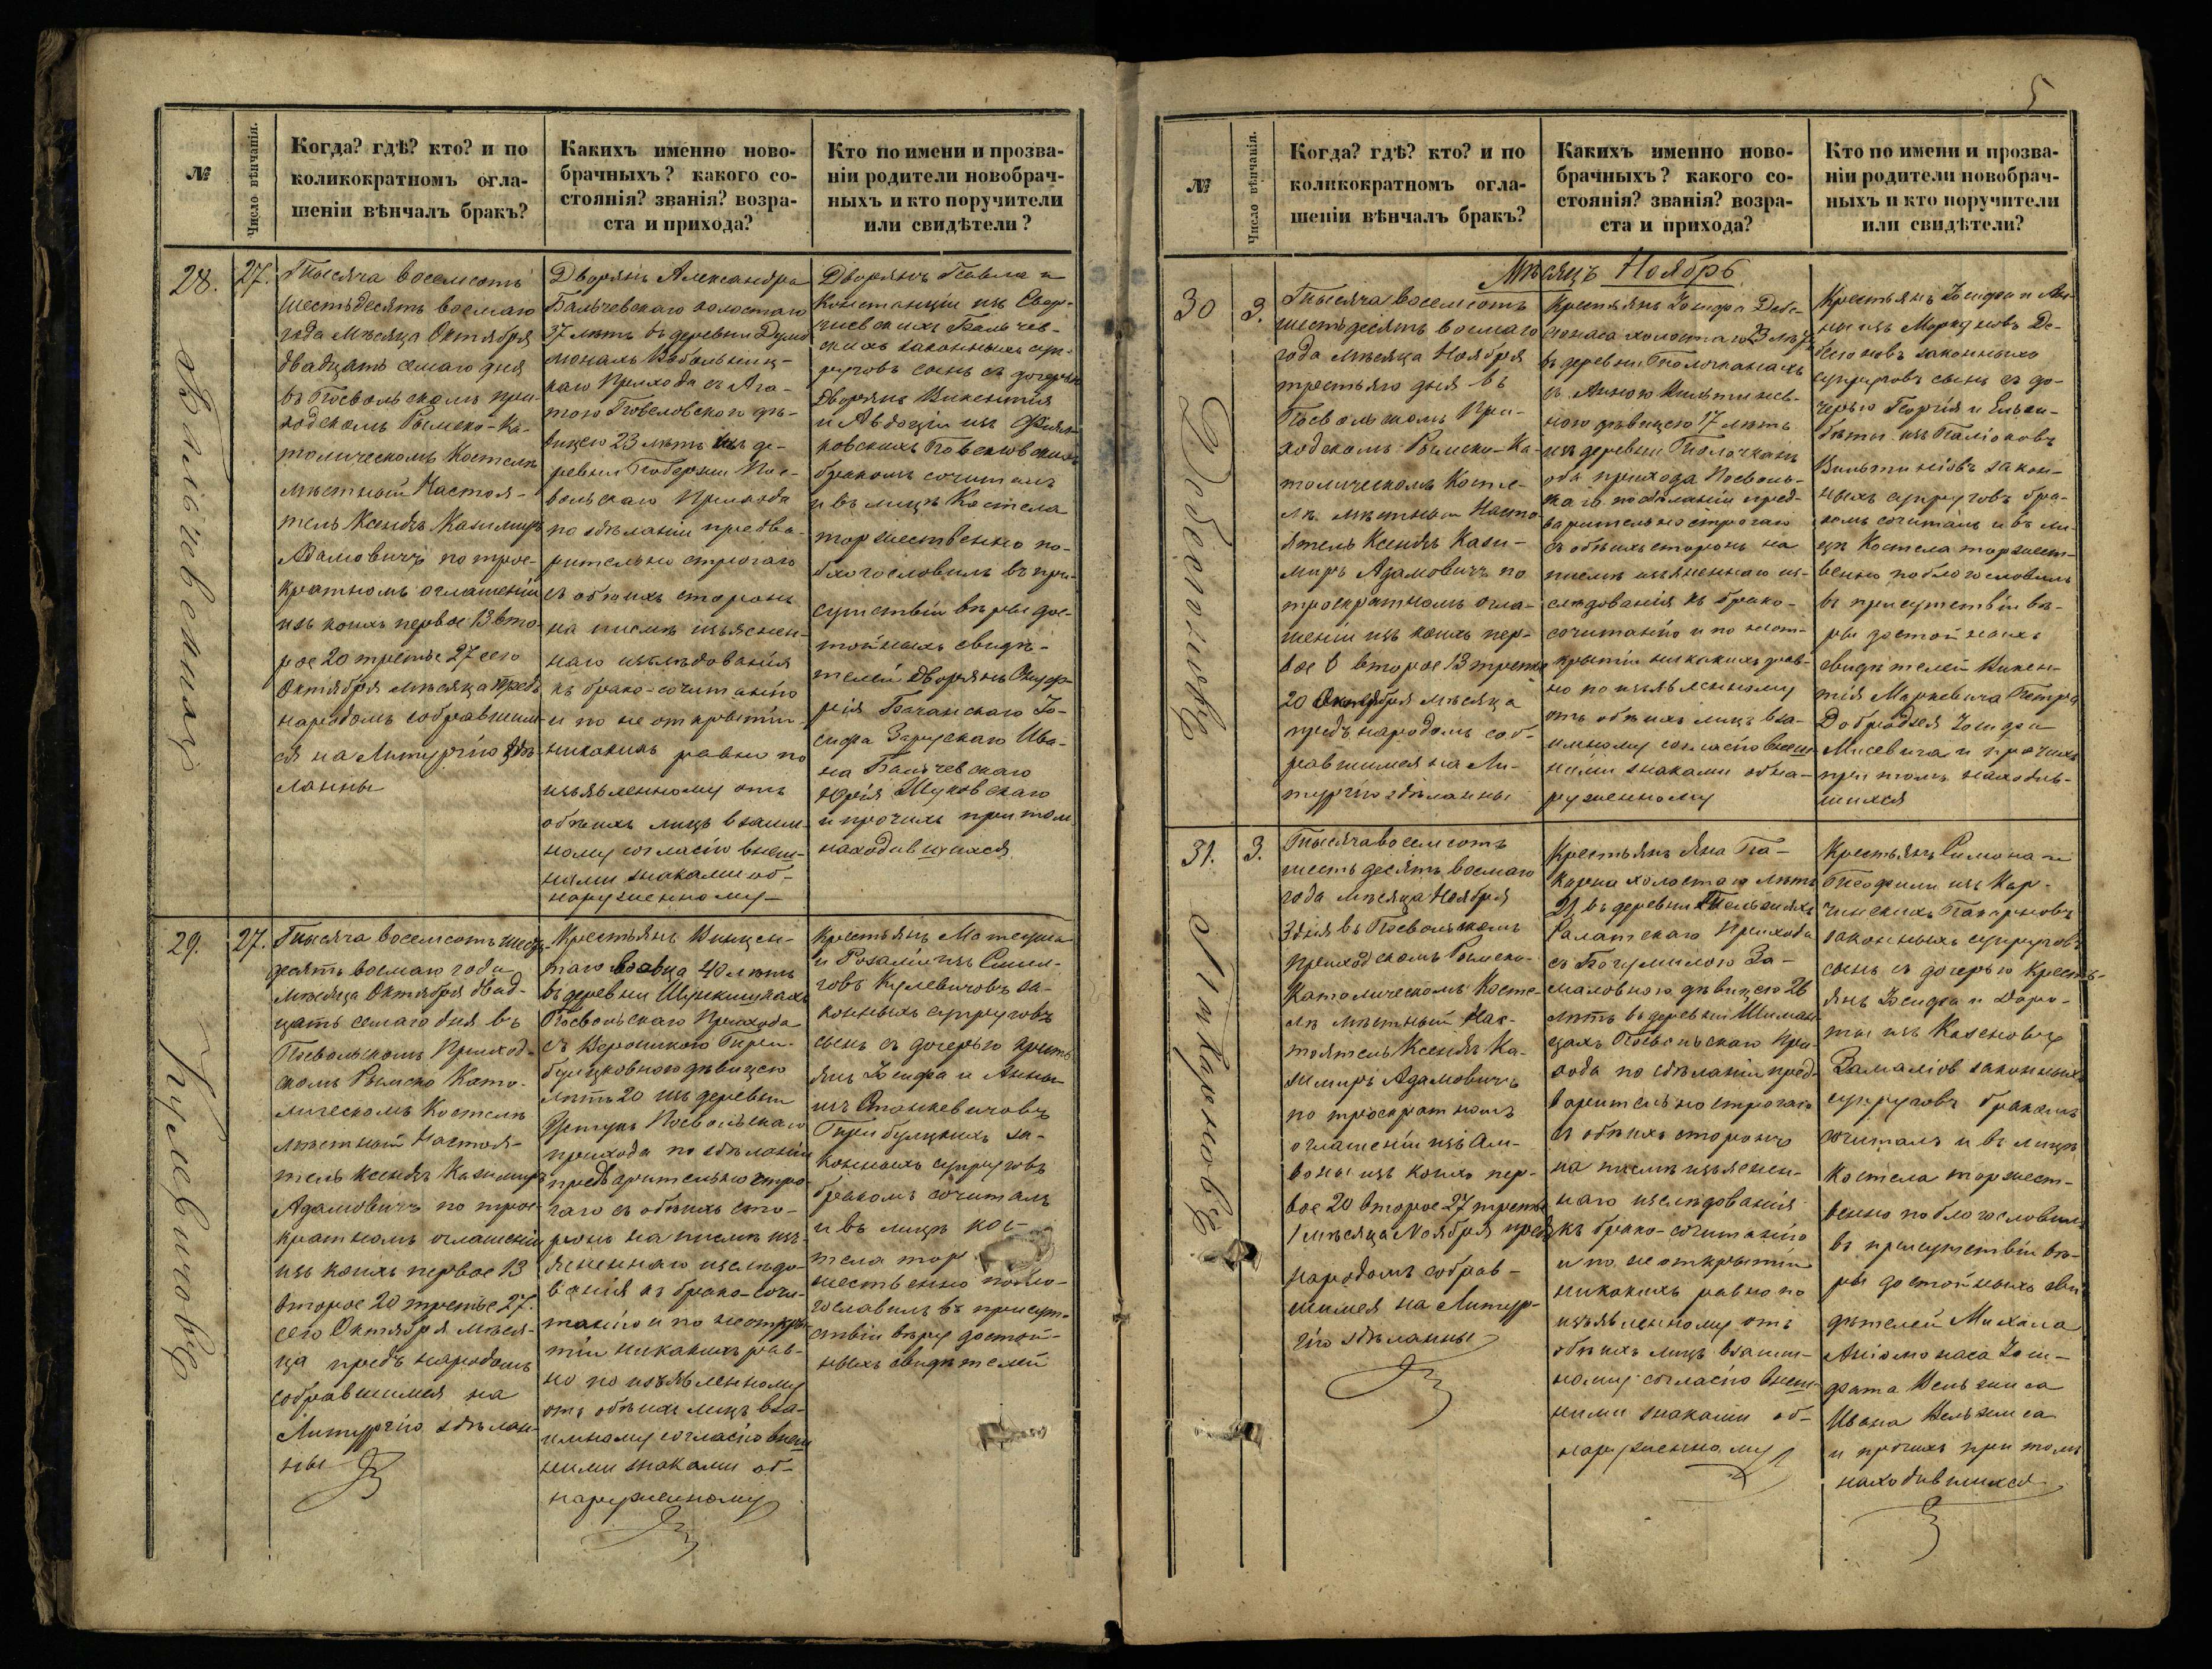 №
Число вѣнчанія.
Когда? гдѣ? кто? и по
коликократномъ огла-
шеніи вѣнчалъ бракъ?
Какихъ именно ново-
брачныхъ? какого со-
стоянія? званія? возра-
ста и прихода?
Кто по имени и прозва-
ніи родители новобрач-
ныхъ и кто поручители
или свидѣтели?
28.
27.
Тысяча восемсотъ
шестьдесятъ восмаго
года мѣсяца Октября
двадцать семаго дня
въ Посвольскомъ при-
ходскомъ Римско-Ка-
толическомъ Костелѣ
мѣстный Настоя-
тель Ксендзъ Казимиръ
Адамовичъ по трое-
кратномъ оглашеніи
изъ коихъ первое 13 вто-
рое 20 третье 27 сего
Октября мѣсяца предъ
народомъ собравшим-
ся на Литургію здѣ-
ланны
Дворянъ Александра
Бальчевскаго холостаго
37 лѣтъ въ деревни
Вобольниц-
каго Прихода съ Ага-
тою дѣ-
вицею 23 лѣтъ изъ де-
ревни Пос-
вольскаго Прихода
по здѣланіи предва-
рительно строгаго
съ обоихъ сторонъ
на письмѣ изъяснен-
наго изслѣдованія
къ брако-сочитанію
и по не открытіи
никакихъ равно по
изъявленному отъ
обѣихъ лицъ взаим-
ному согласію внеш-
ними знаками об-
наруженному
Дворянъ Павла и
Констанціи изъ
Бальчев-
скихъ законныхъ суп-
руговъ сынъ съ дочерью
Дворянъ Викентія
и изъ
бракомъ сочиталъ
и въ лицѣ Костела
торжественно по-
благословилъ въ при-
сутствіи вѣры дос-
тойныхъ свидѣ-
телей Дворянъ
Іо-
сифа Зарускаго Ива-
на Бальчевскаго
Юрія Шуковскаго
и прочихъ при томъ
находившихся
Бальчевскій
29.
27.
Тысяча восемсотъ шесть-
десятъ восмаго года
мѣсяца Октября двад-
цать семаго дня въ
Посвольскомъ Приход-
скомъ Римско Като-
лическомъ Костелѣ
мѣстный Настоя-
тель Ксендзъ Казимиръ
Адамовичъ по трое-
кратномъ оглашеніи
изъ коихъ первое 13
второе 20 третье 27.
сего Октября мѣся-
ца предъ народомъ
собравшимся на
Литургію здѣлан-
ны
Крестьянъ Винцен-
таго вдовца 40 лѣтъ
въ деревни
Посвольскаго Прихода
съ Вероникою
дѣвицею
лѣтъ 20 изъ деревни
Посвольскаго
прихода по здѣланіи
предварительно стро-
гаго съ обѣихъ сто-
ронъ на письмѣ изъ-
ясненнаго изслѣдо-
ванія къ брако-сочи-
танію и по неоткры-
тіи никакихъ рав-
но по изъявленному
отъ обѣихъ лицъ вза-
имному согласію внеш
ними знаками об-
наруженному
Крестьянъ Матеуша
и Розаліи изъ
Кулевичовъ за-
конныхъ супруговъ
сынъ съ дочерью кресть
янъ Іосифа и Анны
изъ Станкевичовъ
за-
конныхъ супруговъ
бракомъ сочиталъ
и въ лицѣ кос-
тела тор
жественно побло-
гославилъ въ присут-
ствіи вѣры достой-
ныхъ свидѣтелей
Кулевичовъ
5
№
Число вѣнчанія.
Когда? гдѣ? кто? и по
коликократномъ огла-
шеніи вѣнчалъ бракъ?
Какихъ именно ново-
брачныхъ? какого со-
стоянія? званія? возра-
ста и прихода?
Кто по имени и прозва-
ніи родители новобрач-
ныхъ и кто поручители
или свидѣтели?
Мѣсяцъ Ноябрь
30
3.
Тысяча восемсотъ
шестьдесятъ восмаго
года мѣсяца Ноября
третьяго дня въ
Посвольскомъ При-
ходскомъ Римско-Ка-
толическомъ Косте-
лѣ мѣстный Насто
ятель Ксендзъ Кази-
миръ Адамовичъ по
троекратномъ огла-
шеніи изъ коихъ пер-
вое второе 13 третье
20 Октября мѣсяца
предъ народомъ соб-
равшимся на Ли-
тургію здѣланны
Крестьянъ Іосифа
холостаго 23 лѣтъ
въ деревни
съ Анною
дѣвицею 17 лѣтъ
изъ деревни
оба прихода Посволь-
каго по здѣланіи пред-
варительно строгаго
съ обѣихъ сторонъ на
письмѣ изъясненнаго из-
слѣдованія къ брако-
сочитанію и по неот-
крытіи никакихъ рав-
но по изъявленному
отъ обѣихъ лицъ вза-
имному согласію внеш
ними знаками обна-
руженному
Крестьянъ Іосифа и Ан-
ны изъ
законныхъ
супруговъ сынъ съ до-
черью Георгія и Елиза-
беты изъ
закон-
ныхъ супруговъ бра-
комъ сочиталъ и въ ли-
цѣ Костела торжест-
венно поблогословилъ
въ присутствіи вѣ-
ры достойныхъ
свидѣтелей Викен-
тія Маркевича Петра
Іосифа
Мисевича и прочихъ
при томъ находив-
шихся
31.
3.
Тысяча восемсотъ
шесть десятъ восмаго
года мѣсяца Ноября
3 дня въ Посвольскомъ
Приходскомъ Римско-
Католическомъ Косте-
лѣ мѣстный Нас-
тоятель Ксендзъ Ка-
зимиръ Адамовичъ
по троекратномъ
оглашеніи изъ Ам-
воны изъ коихъ пер-
вое 20 второе 27 третье
1 мѣсяца Ноября предъ
народомъ собрав-
шимся на Литур-
гію здѣланны
Крестьянъ Яна Па-
карна холостаго лѣтъ
21 въ деревни
Салатскаго Прихода
съ Богумилою За-
маловною дѣвицею 26
лѣтъ въ деревни Шиман-
цахъ Посвольскаго При-
хода по здѣланіи пред-
варительно строгаго
съ обѣихъ сторонъ
на письмѣ изъяснен-
наго изслѣдованія
къ брако-сочитанію
и по не открытіи
никакихъ равно по
изъявленному отъ
обѣихъ лицъ взаим-
ному согласію внеш-
ними знаками об-
наруженному
Крестьянъ Симона и
Теофили изъ Кар-
Пакарновъ
законныхъ супруговъ
сынъ съ дочерью Кресть-
янъ Іосифа и Доро-
ты изъ
законныхъ
супруговъ бракомъ
сочиталъ и въ лицѣ
Костела торжест-
венно поблогословилъ
въ присутствіи вѣ-
ры достойныхъ сви
дѣтелей Михала
Іоси-
фата
Ивана
и прочихъ при томъ
находившихся
Пакарновъ